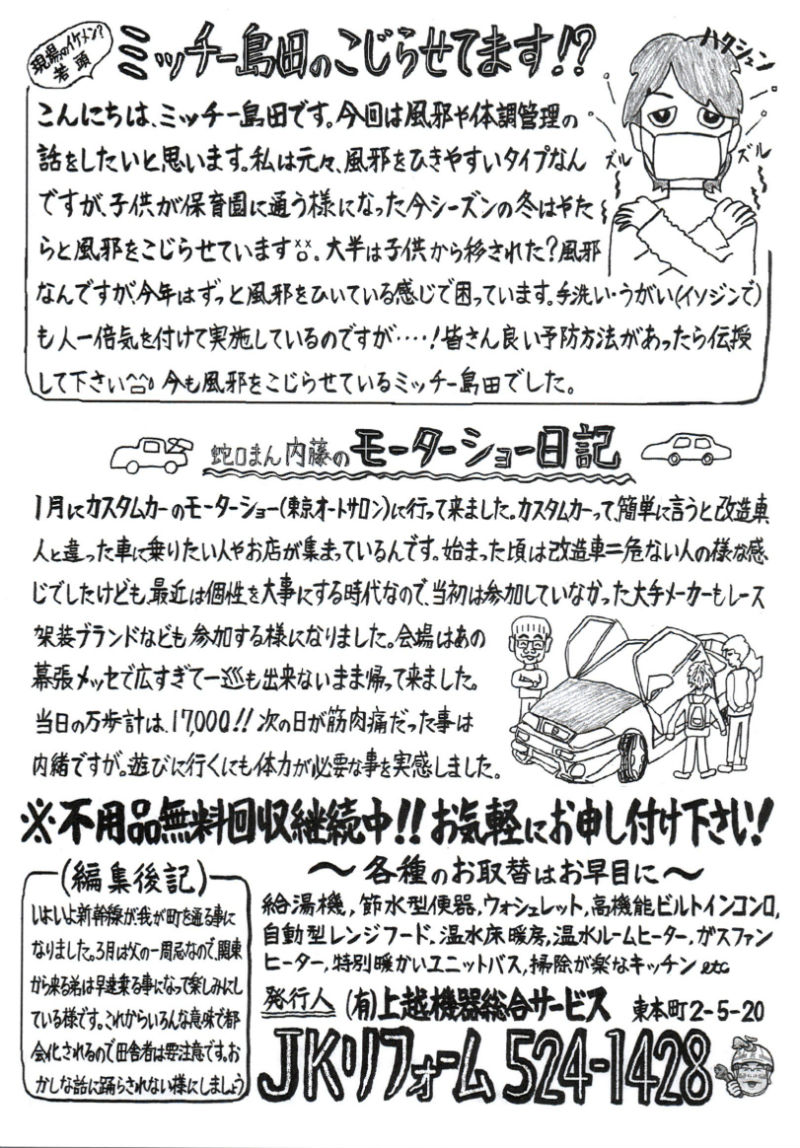 現場のイケメン?
若頭
ミッチー島田のこじらせてます!?
ハクション
ズル
ズル
こんにちは、ミッチー島田です。今回は風邪や体調管理の
話をしたいと思います。私は元々、風邪をひきやすいタイプなん
ですが、子供が保育園に通う様になった今シーズンの冬はやた
らと風邪をこじらせています。大半は子供から移された?風邪
なんですが今年はずっと風邪をひいている感じで困っています。手洗い・うがい(イソジンで)
も人一倍気を付けて実施しているのですが‥‥!皆さん良い予防方法があったら伝授
して下さい^^。今も風邪をこじらせているミッチー島田でした。
蛇口まん内藤のモーターショー日記
1月にカスタムカーのモーターショー(東京オートサロン)に行って来ました。カスタムカーって、簡単に言うと改造車
人と違った車に乗りたい人やお店が集まっているんです。始まった頃は改造車=危ない人の様な感
じでしたけども、最近は個性を大事にする時代なので、当初は参加していなかった大手メーカーもレース
架装ブランドなども参加する様になりました。会場はあの
幕張メッセで広すぎて一巡も出来ないまま帰って来ました。
当日の万歩計は、17,000!!次の日が筋肉痛だった事は
内緒ですが。遊びに行くにも体力が必要な事を実感しました。
※不用品無料回収継続中!!お気軽にお申し付け下さい!
(編集後記)
いよいよ新幹線が我が町を通る事に
なりました。3月は父の一周忌なので、関東
から来る弟は早速乗る事になって楽しみにし
ている様です。これからいろんな意味で都
会化されるので田舎者は要注意です。お
かしな話に踊らされない様にしましょう
〜各種のお取替はお早目に〜
給湯機,節水型便器,ウォシュレット,高機能ビルトインコンロ,
自動型レンジフード,温水床暖房,温水ルームヒーター,ガスファン
ヒーター,特別暖かいユニットバス,掃除が楽なキッチンetc
発行人 (有)上越機器総合サービス 東本町2-5-20
JKリフォーム 524-1428